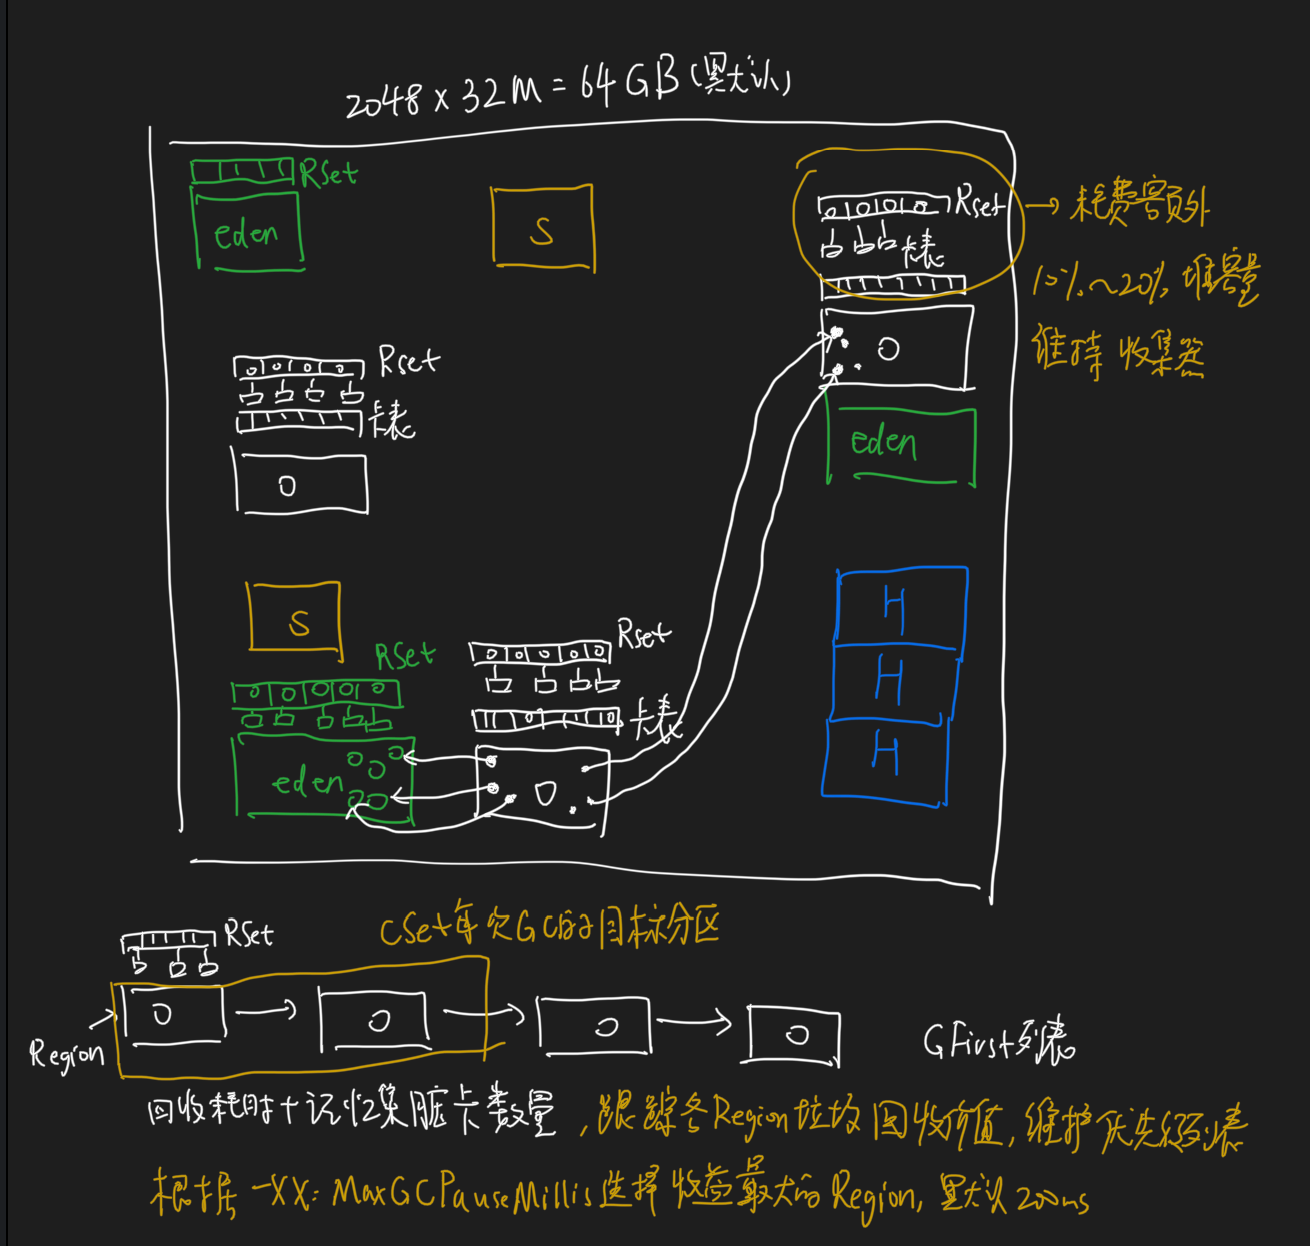 2048 x 32M = 64GB (默认)
RSet
eden
S
Rset
卡表
→ 耗费额外
10%~20% 堆容量
维持收集器
O
eden
Rset
卡表
O
S
RSet
eden
Rset
卡表
O
H
H
H
RSet
CSet每次GC的目标分区
Region
O
O
O
O
GFirst列表
回收耗时+记忆集脏卡数量,跟踪各Region垃圾回收价值,维护优先级列表
根据-XX:MaxGCPauseMillis选择收益最大的Region,默认200ms